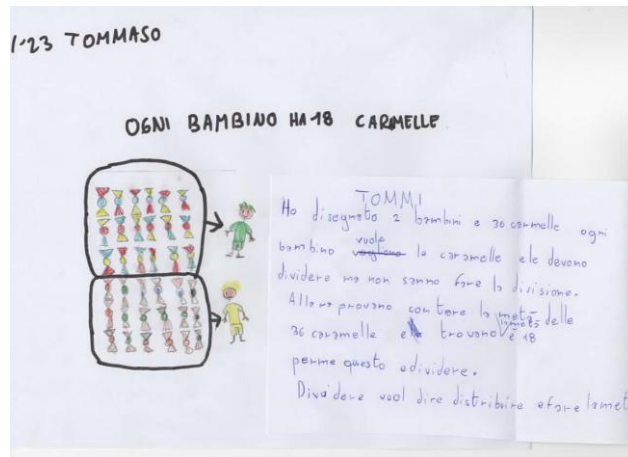 1-23 TOMMASO
OGNI BAMBINO HA 18 CARMELLE
TOMMI
Ho disegnato 2 bambini e 36 carmelle ogni
bambino vuole la caramelle ele devono
dividere ma non sanno fare la divisione.
Allora provano contare la metà delle
36 caramelle e trovano lametà è 18
perme questo edividere.
Dividere vuol dire distribuire efare lamet